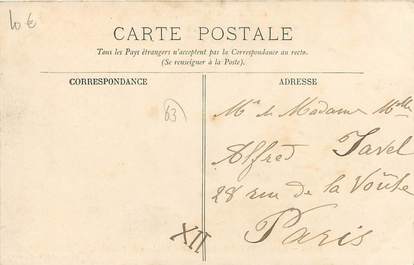 10 €
CARTE POSTALE
Tous les Pays étrangers n'acceptent pas la Correspondance au recto.
(Se renseigner à la Poste).
CORRESPONDANCE
ADRESSE
63
Mr & Madame
Alfred Javel
28 rue de la Voûte
Paris
XII